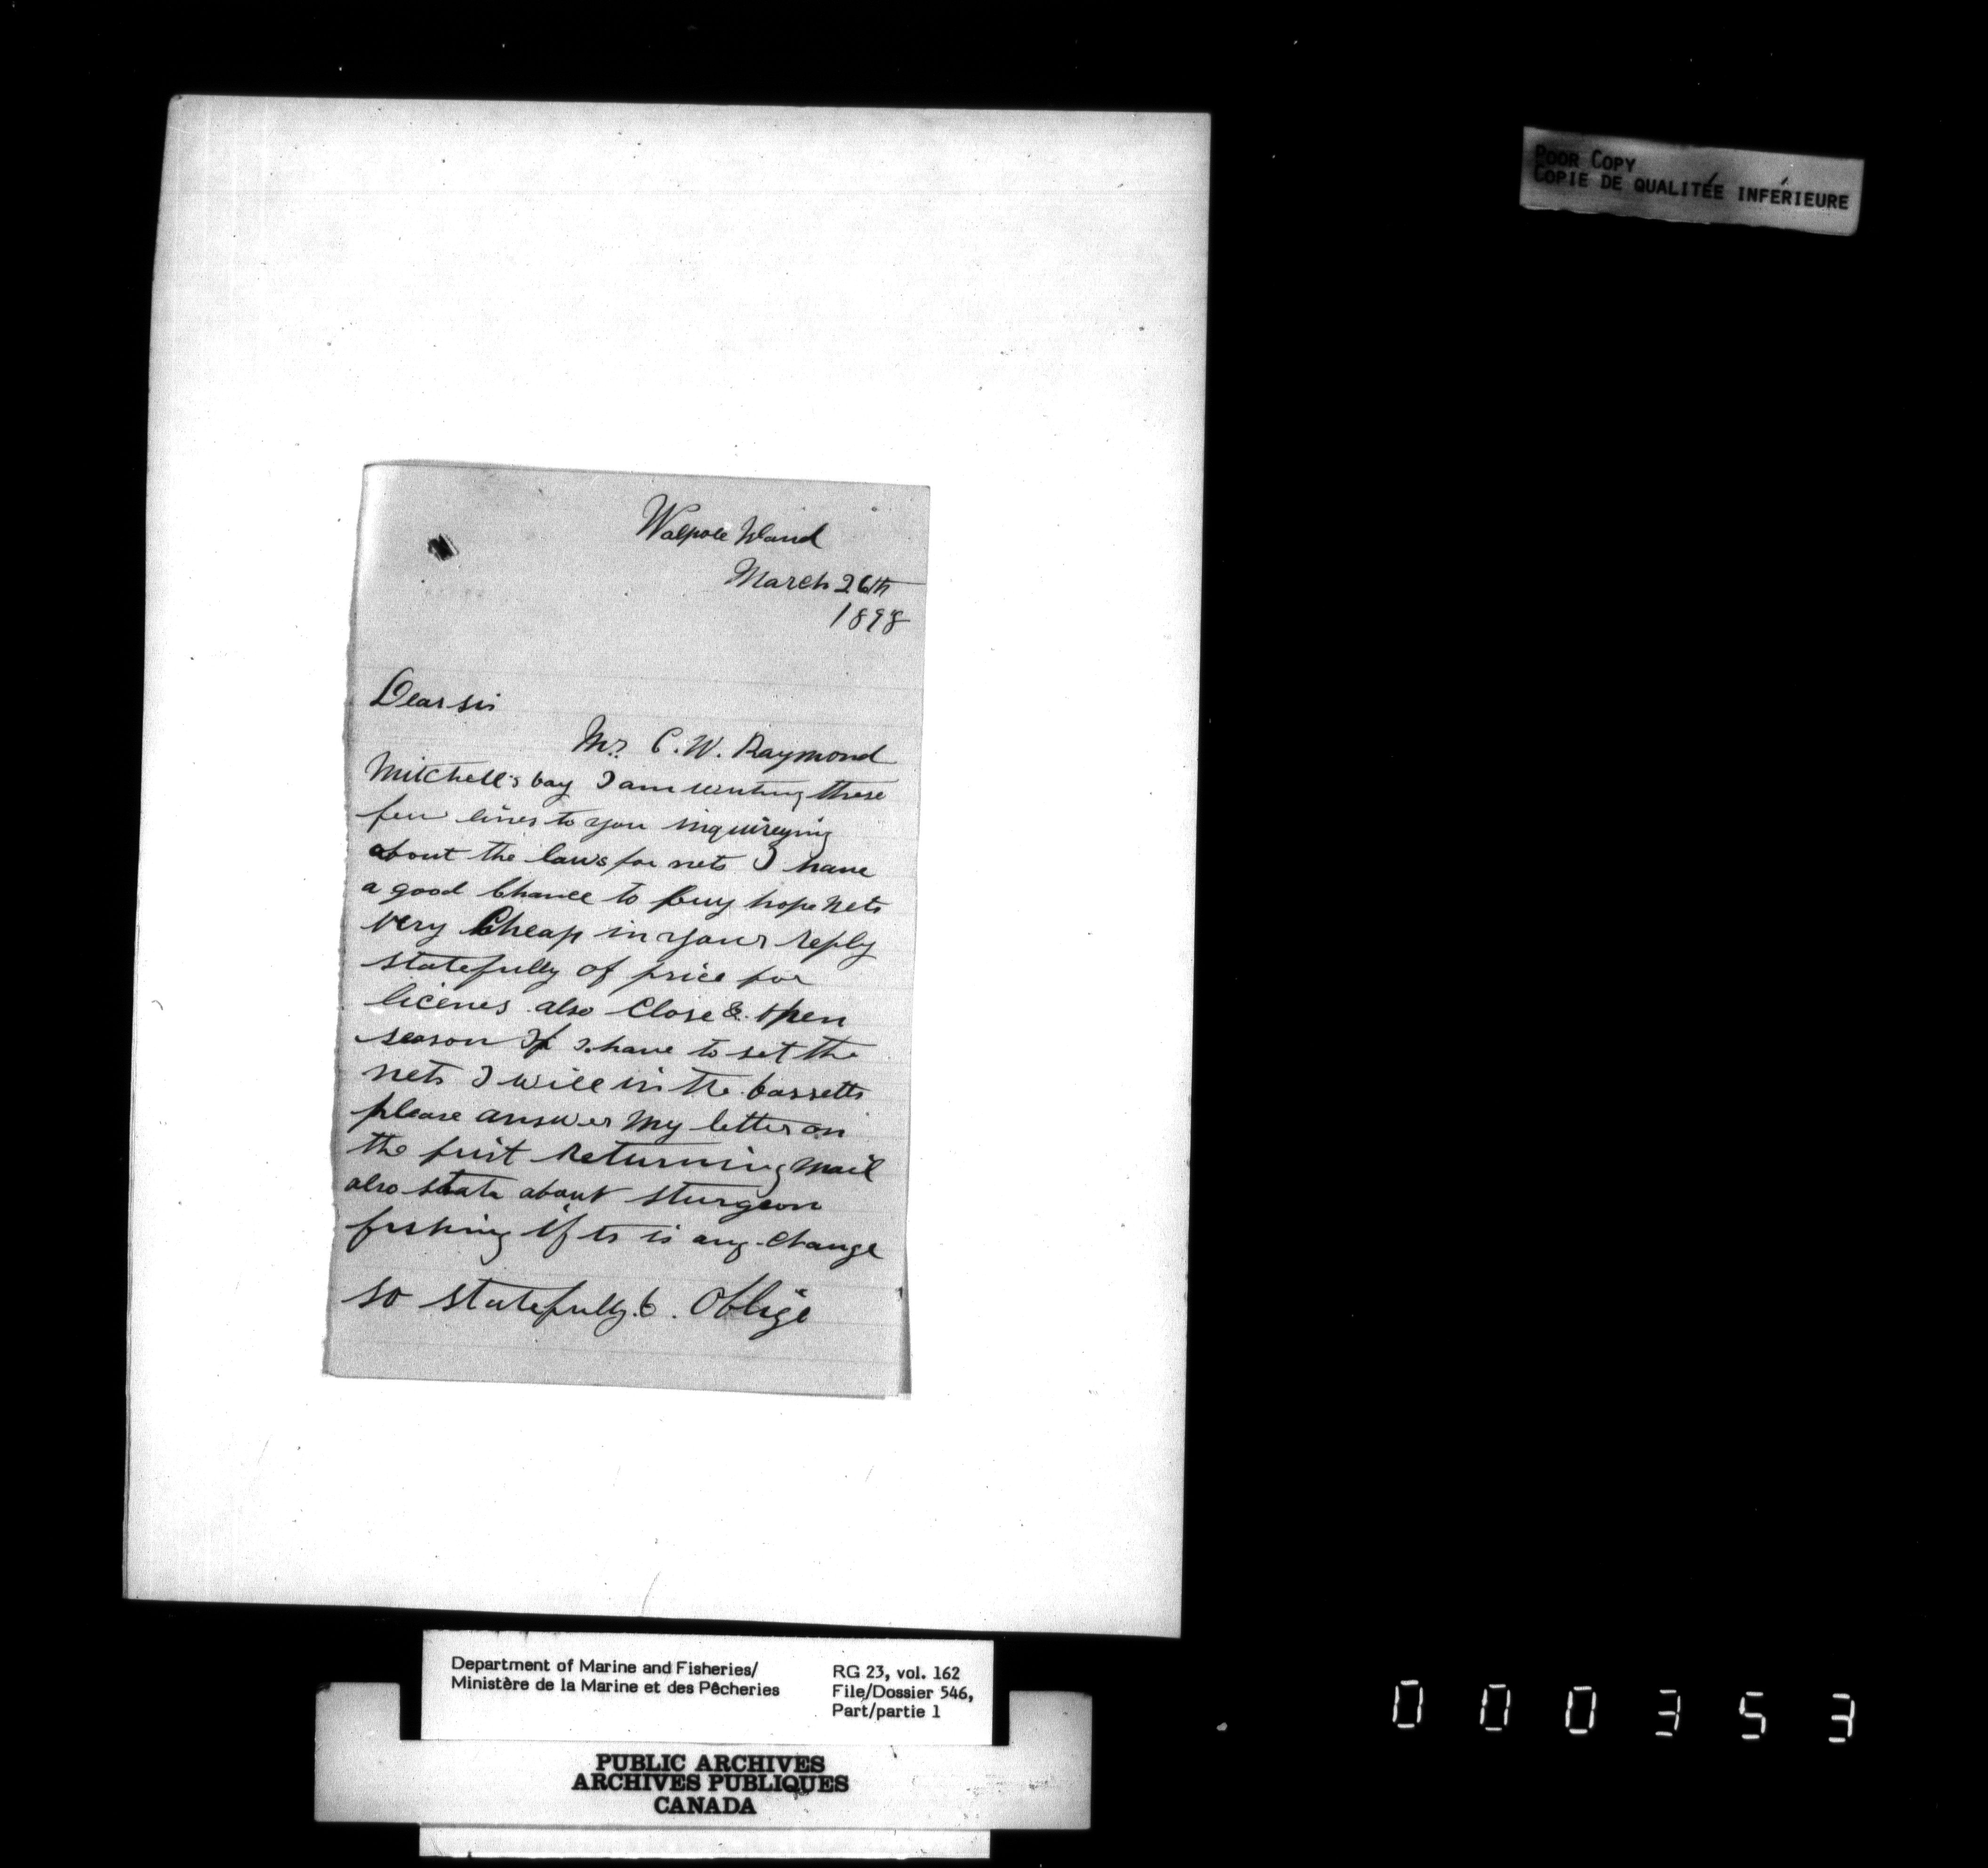 POOR COPY
COPIE DE QUALITÉE INFÉRIEURE
Walpole Island
March 26th
1898
Dear sir
Mr. C. W. Raymond
Mitchell's bay I am writing these
few lines to you inquireying
about the laws for nets I have
a good Chance to buy hope nets
very Cheap in your reply
statefully of price for
licenes also Close & open
season If I have to set the
nets I will in the bassetts
please answer my letter on
the first returning mail
also state about sturgeon
fishing if is any change
so statefully. Oblige
Department of Marine and Fisheries/
Ministère de la Marine et des Pêcheries
RG 23, vol. 162
File/Dossier 546,
Part/partie 1
PUBLIC ARCHIVES
ARCHIVES PUBLIQUES
CANADA
000353